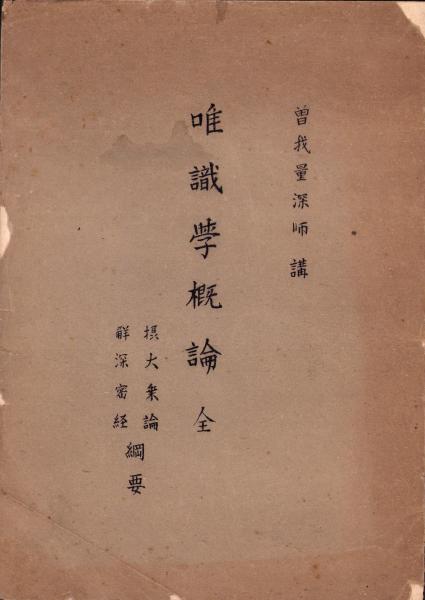 曽我量深師 講
唯識学概論 全
摂大乗論
解深密経
綱要